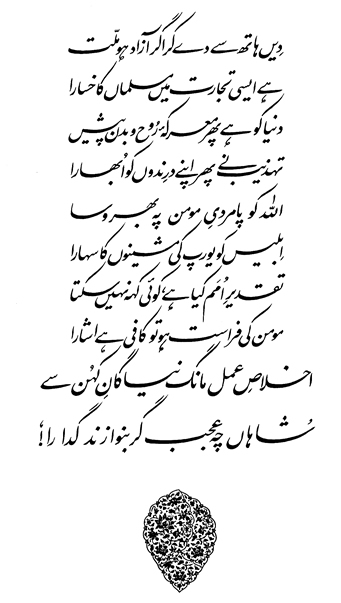 دِیں ہاتھ سے دے کر اگر آزاد ہو ملّت
ہے ایسی تجارت میں مسلماں کا خسارا
دنیا کو ہے پھر معرکۂ رُوح و بدن پیش
تہذیب نے پھر اپنے درِندوں کو اُبھارا
اللہ کو پامردیِ مومن پہ بھروسا
اِبلیس کو یورپ کی مشینوں کا سہارا
تقدیرِ اُمَم کیا ہے، کوئی کہہ نہیں سکتا
مومن کی فراست ہو تو کافی ہے اشارا
اخلاصِ عمل مانگ نیا گانِ کُہن سے
شاہاں چہ عجب گر بنوازند گدا را!